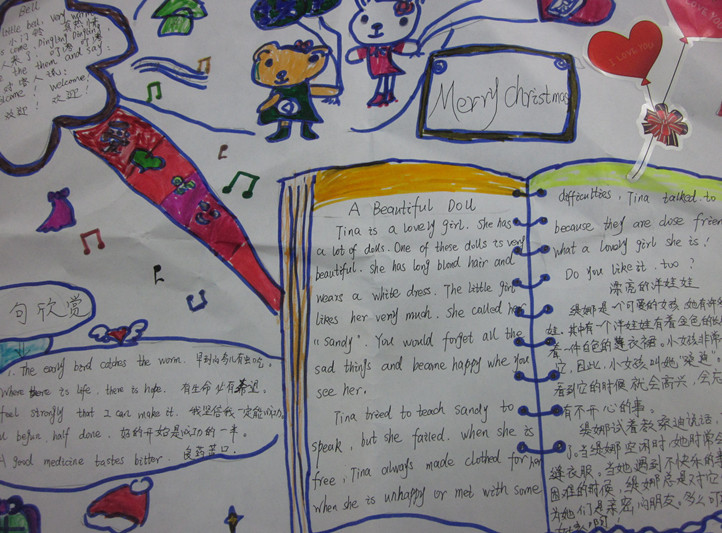 Bell
little bell, very warm
小门铃 真热情
come, Dingling Dingling
人来了, 叮铃叮铃
the them and say:
对客人说:
welcome! welcome!
欢迎! 欢迎!
Merry Christmas
I LOVE YOU
A Beautiful Doll
Tina is a lovely girl. She has
a lot of dolls. One of these dolls is very
beautiful. She has long blond hair and
wears a white dress. The little girl
likes her very much. She called her
"Sandy". You would forget all the
sad things and became happy whe you
see her.
Tina tried to teach sandy to
speak, but she failed. when she is
free, Tina always made clothed for her
when she is unhappy or met with some
difficulties, Tina talked to
because they are close frien
what a lovely girl she is!
Do you like it, too?
漂亮的洋娃娃
缇娜是一个可爱的女孩,她有许
娃,其中有一个洋娃娃有着金色的
着一件白色的连衣裙。小女孩非常
它,因此,小女孩叫她"桑迪"
看到它的时候,就会高兴,会忘
有不开心的事。
缇娜试着教桑迪说话,
了。当缇娜空闲时,她时常会
缝衣服。当她遇到不快乐的事
困难的时候,缇娜总是对它
为她们是亲密的朋友。多么可
句欣赏
1. The early bird catches the worm. 早到的鸟儿有虫吃。
Where there is life, there is hope. 有生命必有希望。
feel strongly that I can make it. 我坚信我一定能成功
l begun, half done. 好的开始是成功的一半。
A good medicine tastes bitter. 良药苦口.